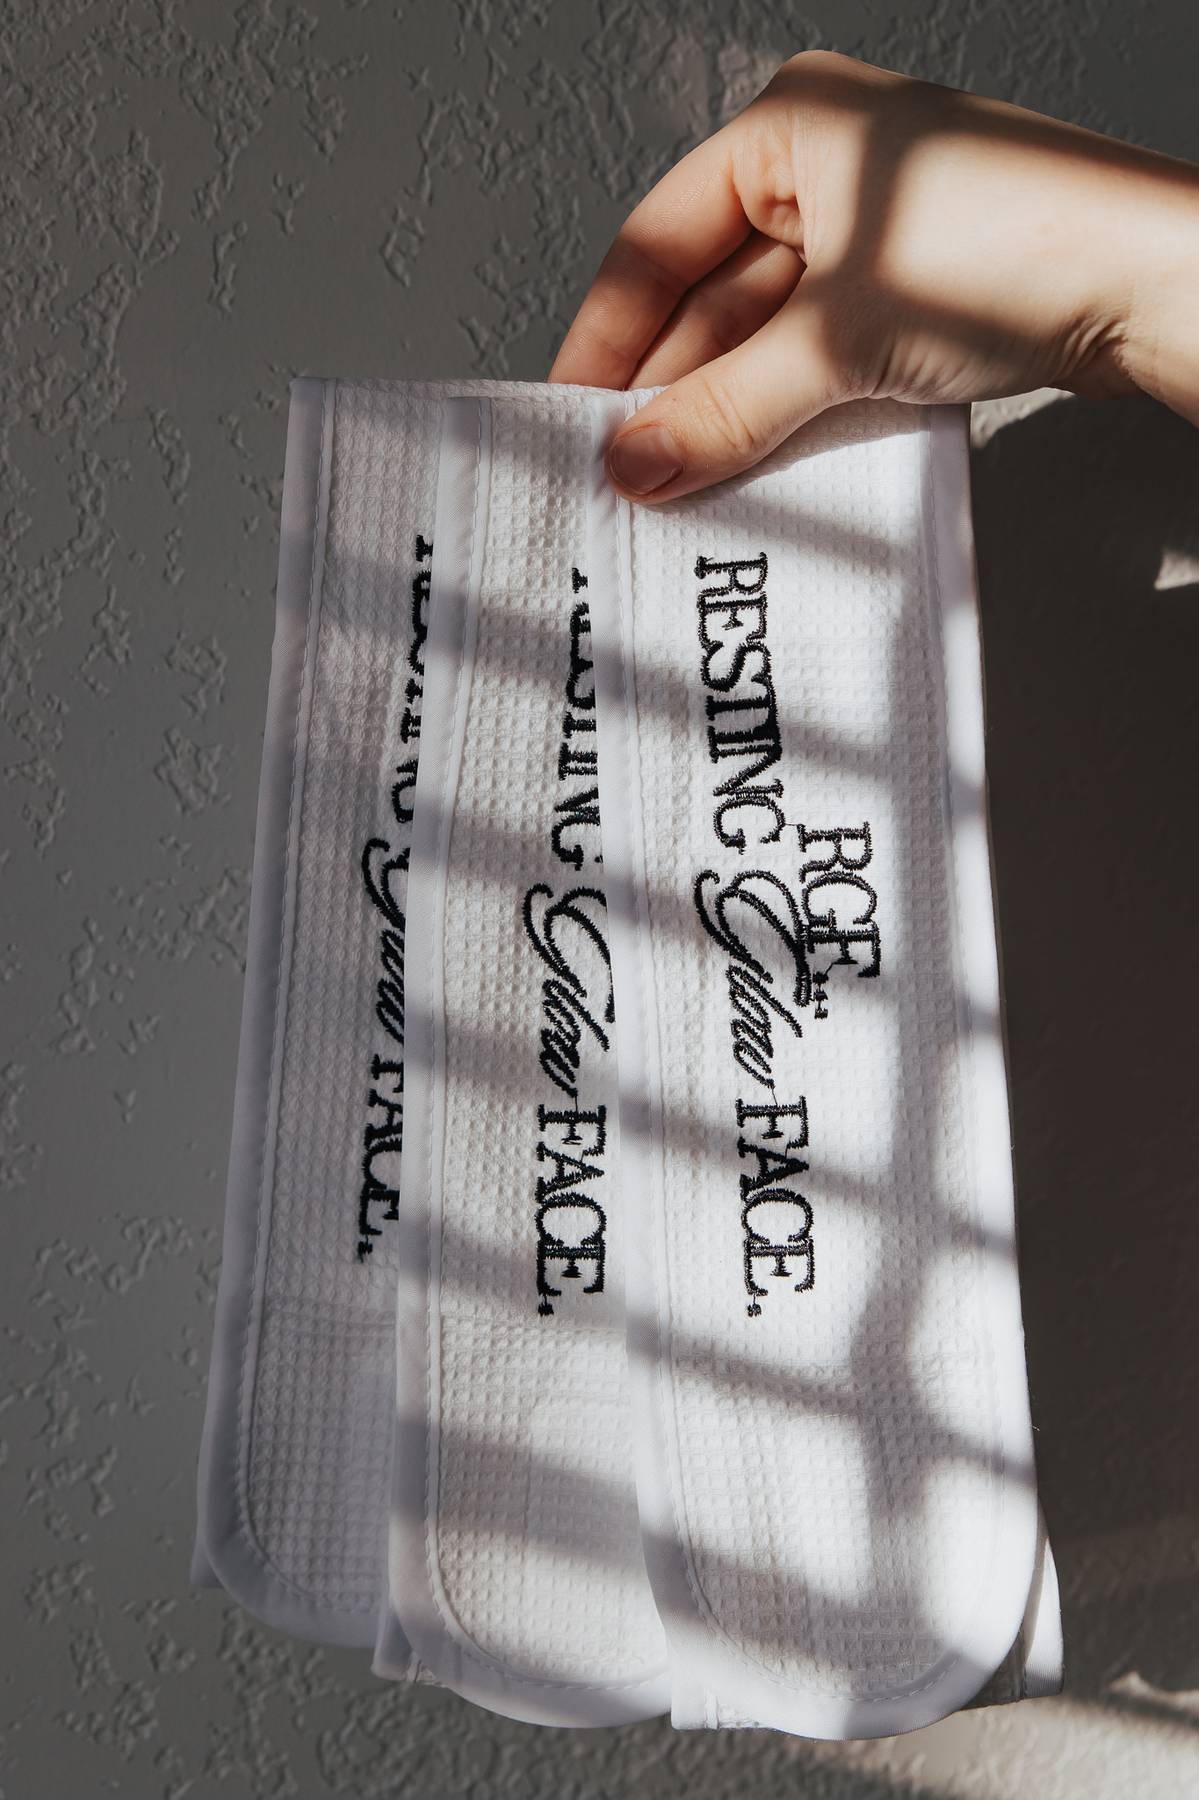 RGE
RESTING Glow FACE.
RESTING Glow FACE.
Glow FACE.